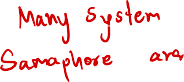 Many System
Samaphore are